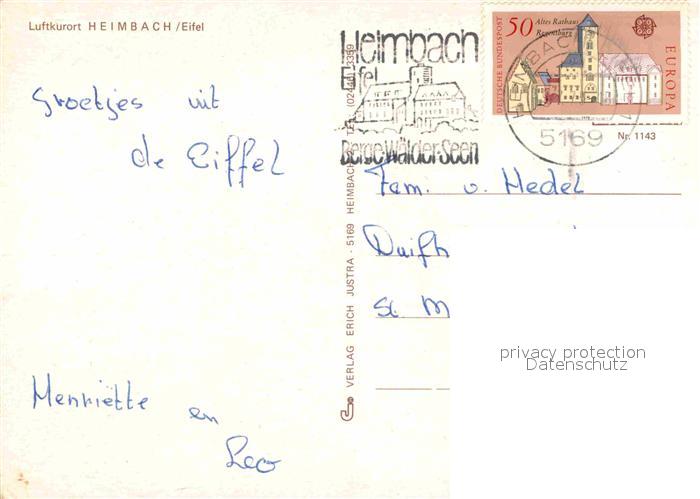 Luftkurort HEIMBACH/Eifel
Groetjes uit
de Eiffel
Henriette en
Leo
VERLAG ERICH JUSTRA · 5169 HEIMBACH
Heimbach
Eifel
Berge·Wälder·Seen
50 Altes Rathaus
Regensburg
DEUTSCHE BUNDESPOST
EUROPA
HEIMBACH
5169
Nr. 1143
Fam. v. Hedel
Duifh
St M
privacy protection
Datenschutz